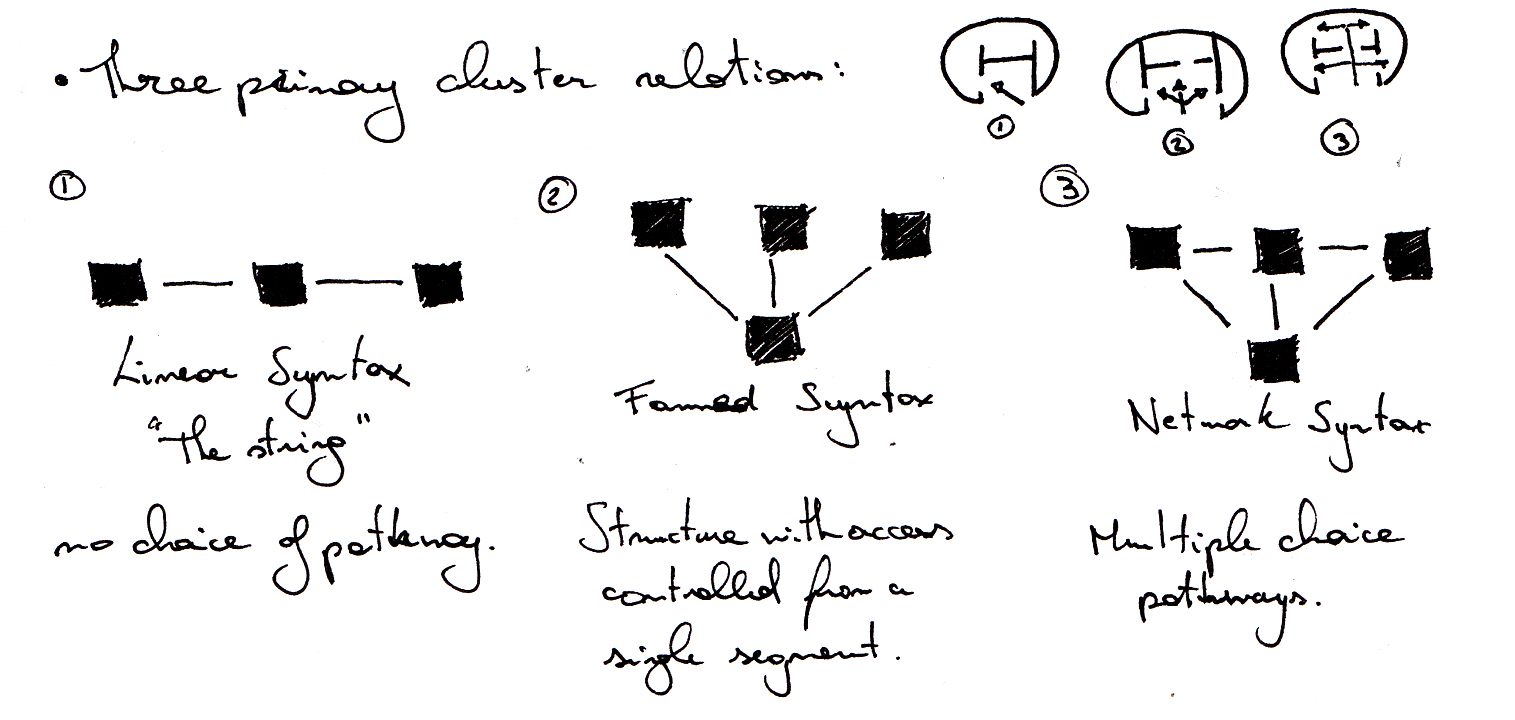 • Three primary cluster relations:
① ② ③
① ② ③
Linear Syntax
"The string"
no choice of pathway.
Fanned Syntax
Structure with access
controlled from a
single segment.
Network Syntax
Multiple choice
pathways.